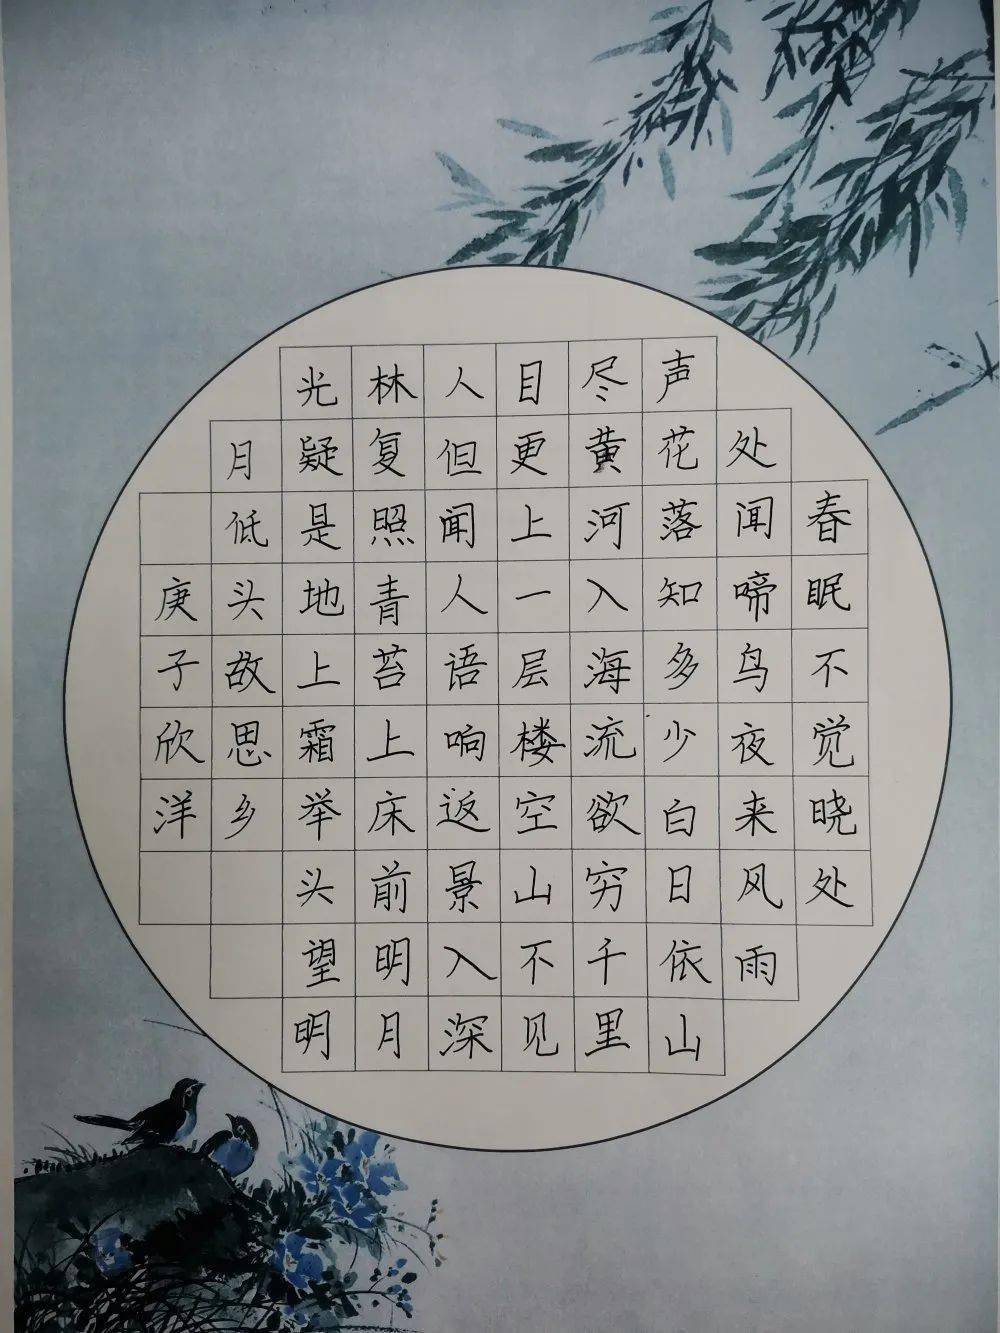 春眠不觉晓处
处闻啼鸟夜来风雨
声花落知多少白日依山
尽黄河入海流欲穷千里
目更上一层楼空山不见
人但闻人语响返景入深
林复照青苔上床前明月
光疑是地上霜举头望明
月低头故思乡
庚子欣洋